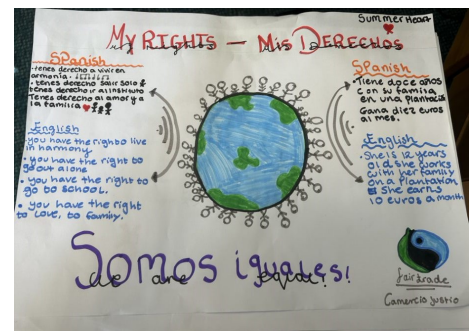 Summer Heart
My Rights - Mis Derechos
Spanish
• tenes derecho a vivir en
armonia.
• tenes derecho salir solo
tenes derecho ir al instituto
Tenes derecho al amor y a
la familia
English
• you have the right to live
in harmony
• you have the right to
go out alone
• you have the right to
go to school.
• you have the right
to love, to family.
Spanish
• Tiene doce años
con su familia
en una plantación
Gana diez euros
al mes.
English
• She is 12 years
old she works
with her family
on a plantation
she earns
10 euros a month
Somos iguales!
We are equal!
fairtrade
Comercio justo